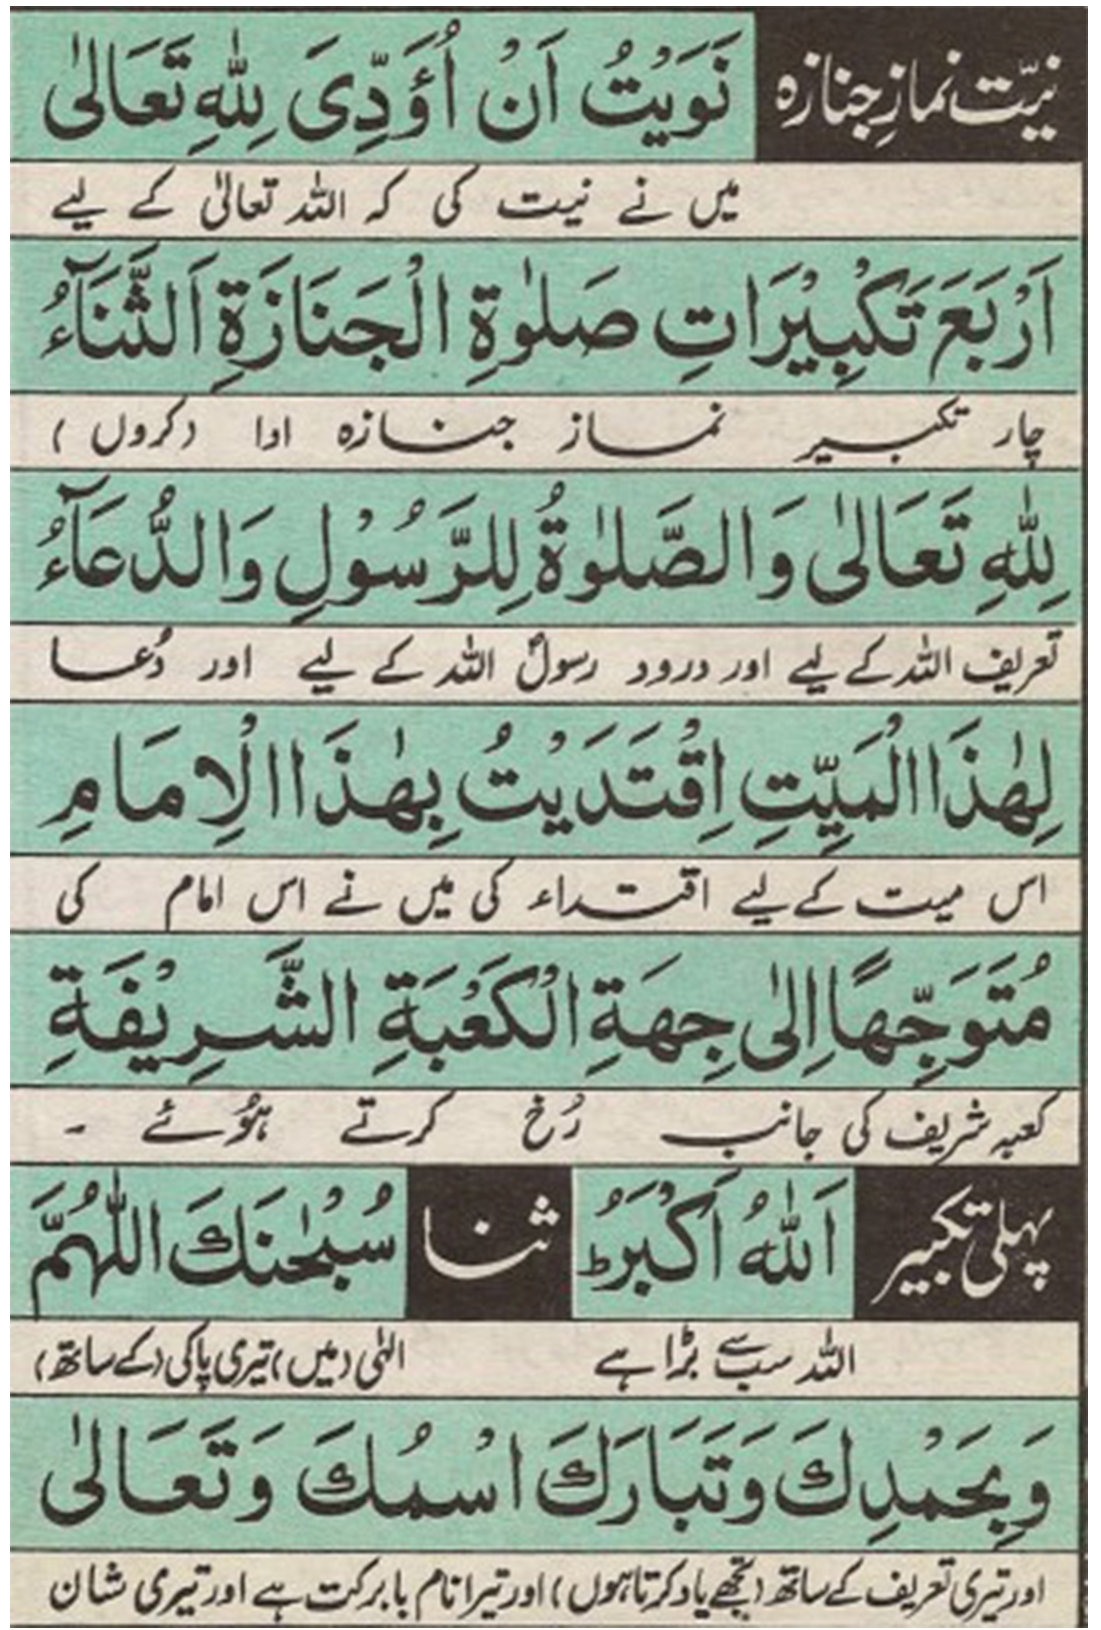 نیّت نمازِ جنازہ نَوَیْتُ اَنْ اُؤَدِّیَ لِلّٰہِ تَعَالٰی
میں نے نیت کی کہ اللہ تعالیٰ کے لیے
اَرْبَعَ تَکْبِیْرَاتِ صَلٰوۃِ الْجَنَازَۃِ اَلثَّنَآءُ
چار تکبیر نماز جنازہ ادا (کروں)
لِلّٰہِ تَعَالٰی وَالصَّلٰوۃُ لِلرَّسُوْلِ وَالدُّعَآءُ
تعریف اللہ کے لیے اور درود رسولؐ اللہ کے لیے اور دُعا
لِھٰذَا الْمَیِّتِ اِقْتَدَیْتُ بِھٰذَا الْاِمَامِ
اس میت کے لیے اقتداء کی میں نے اس امام کی
مُتَوَجِّھًا اِلٰی جِھَۃِ الْکَعْبَۃِ الشَّرِیْفَۃِ
کعبہ شریف کی جانب رُخ کرتے ہُوئے ۔
پہلی تکبیر اَللّٰہُ اَکْبَرُ ط ثنا سُبْحٰنَکَ اللّٰھُمَّ
اللہ سب سے بڑا ہے الٰہی (میں) تیری پاکی (کے ساتھ)
وَبِحَمْدِکَ وَتَبَارَکَ اسْمُکَ وَتَعَالٰی
اور تیری تعریف کے ساتھ (تجھے یاد کرتا ہوں) اور تیرا نام بابرکت ہے اور تیری شان